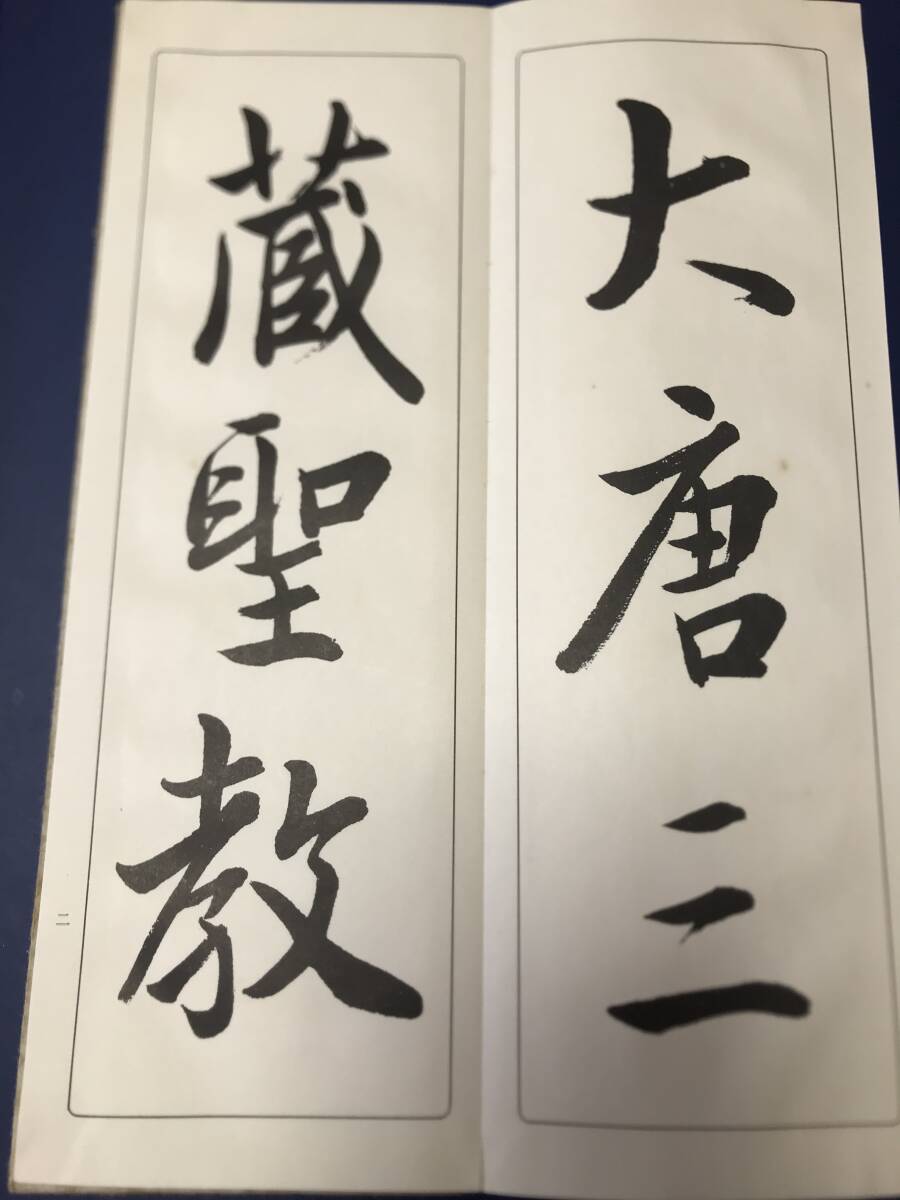 大唐三
蔵聖教
二